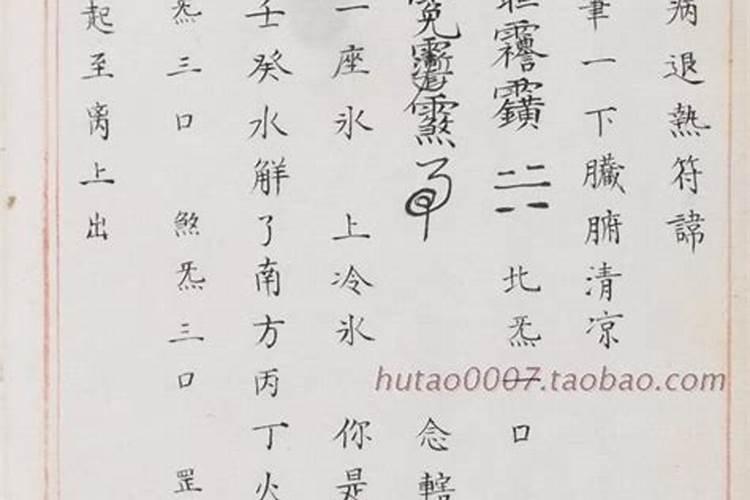 病退熱符諱
筆一下臟腑清凉
北炁一口
念轄
一座氷 上冷氷 你是
壬癸水解了南方丙丁火
炁三口 煞炁三口 罡
起至离上出
hutao0007.taobao.com